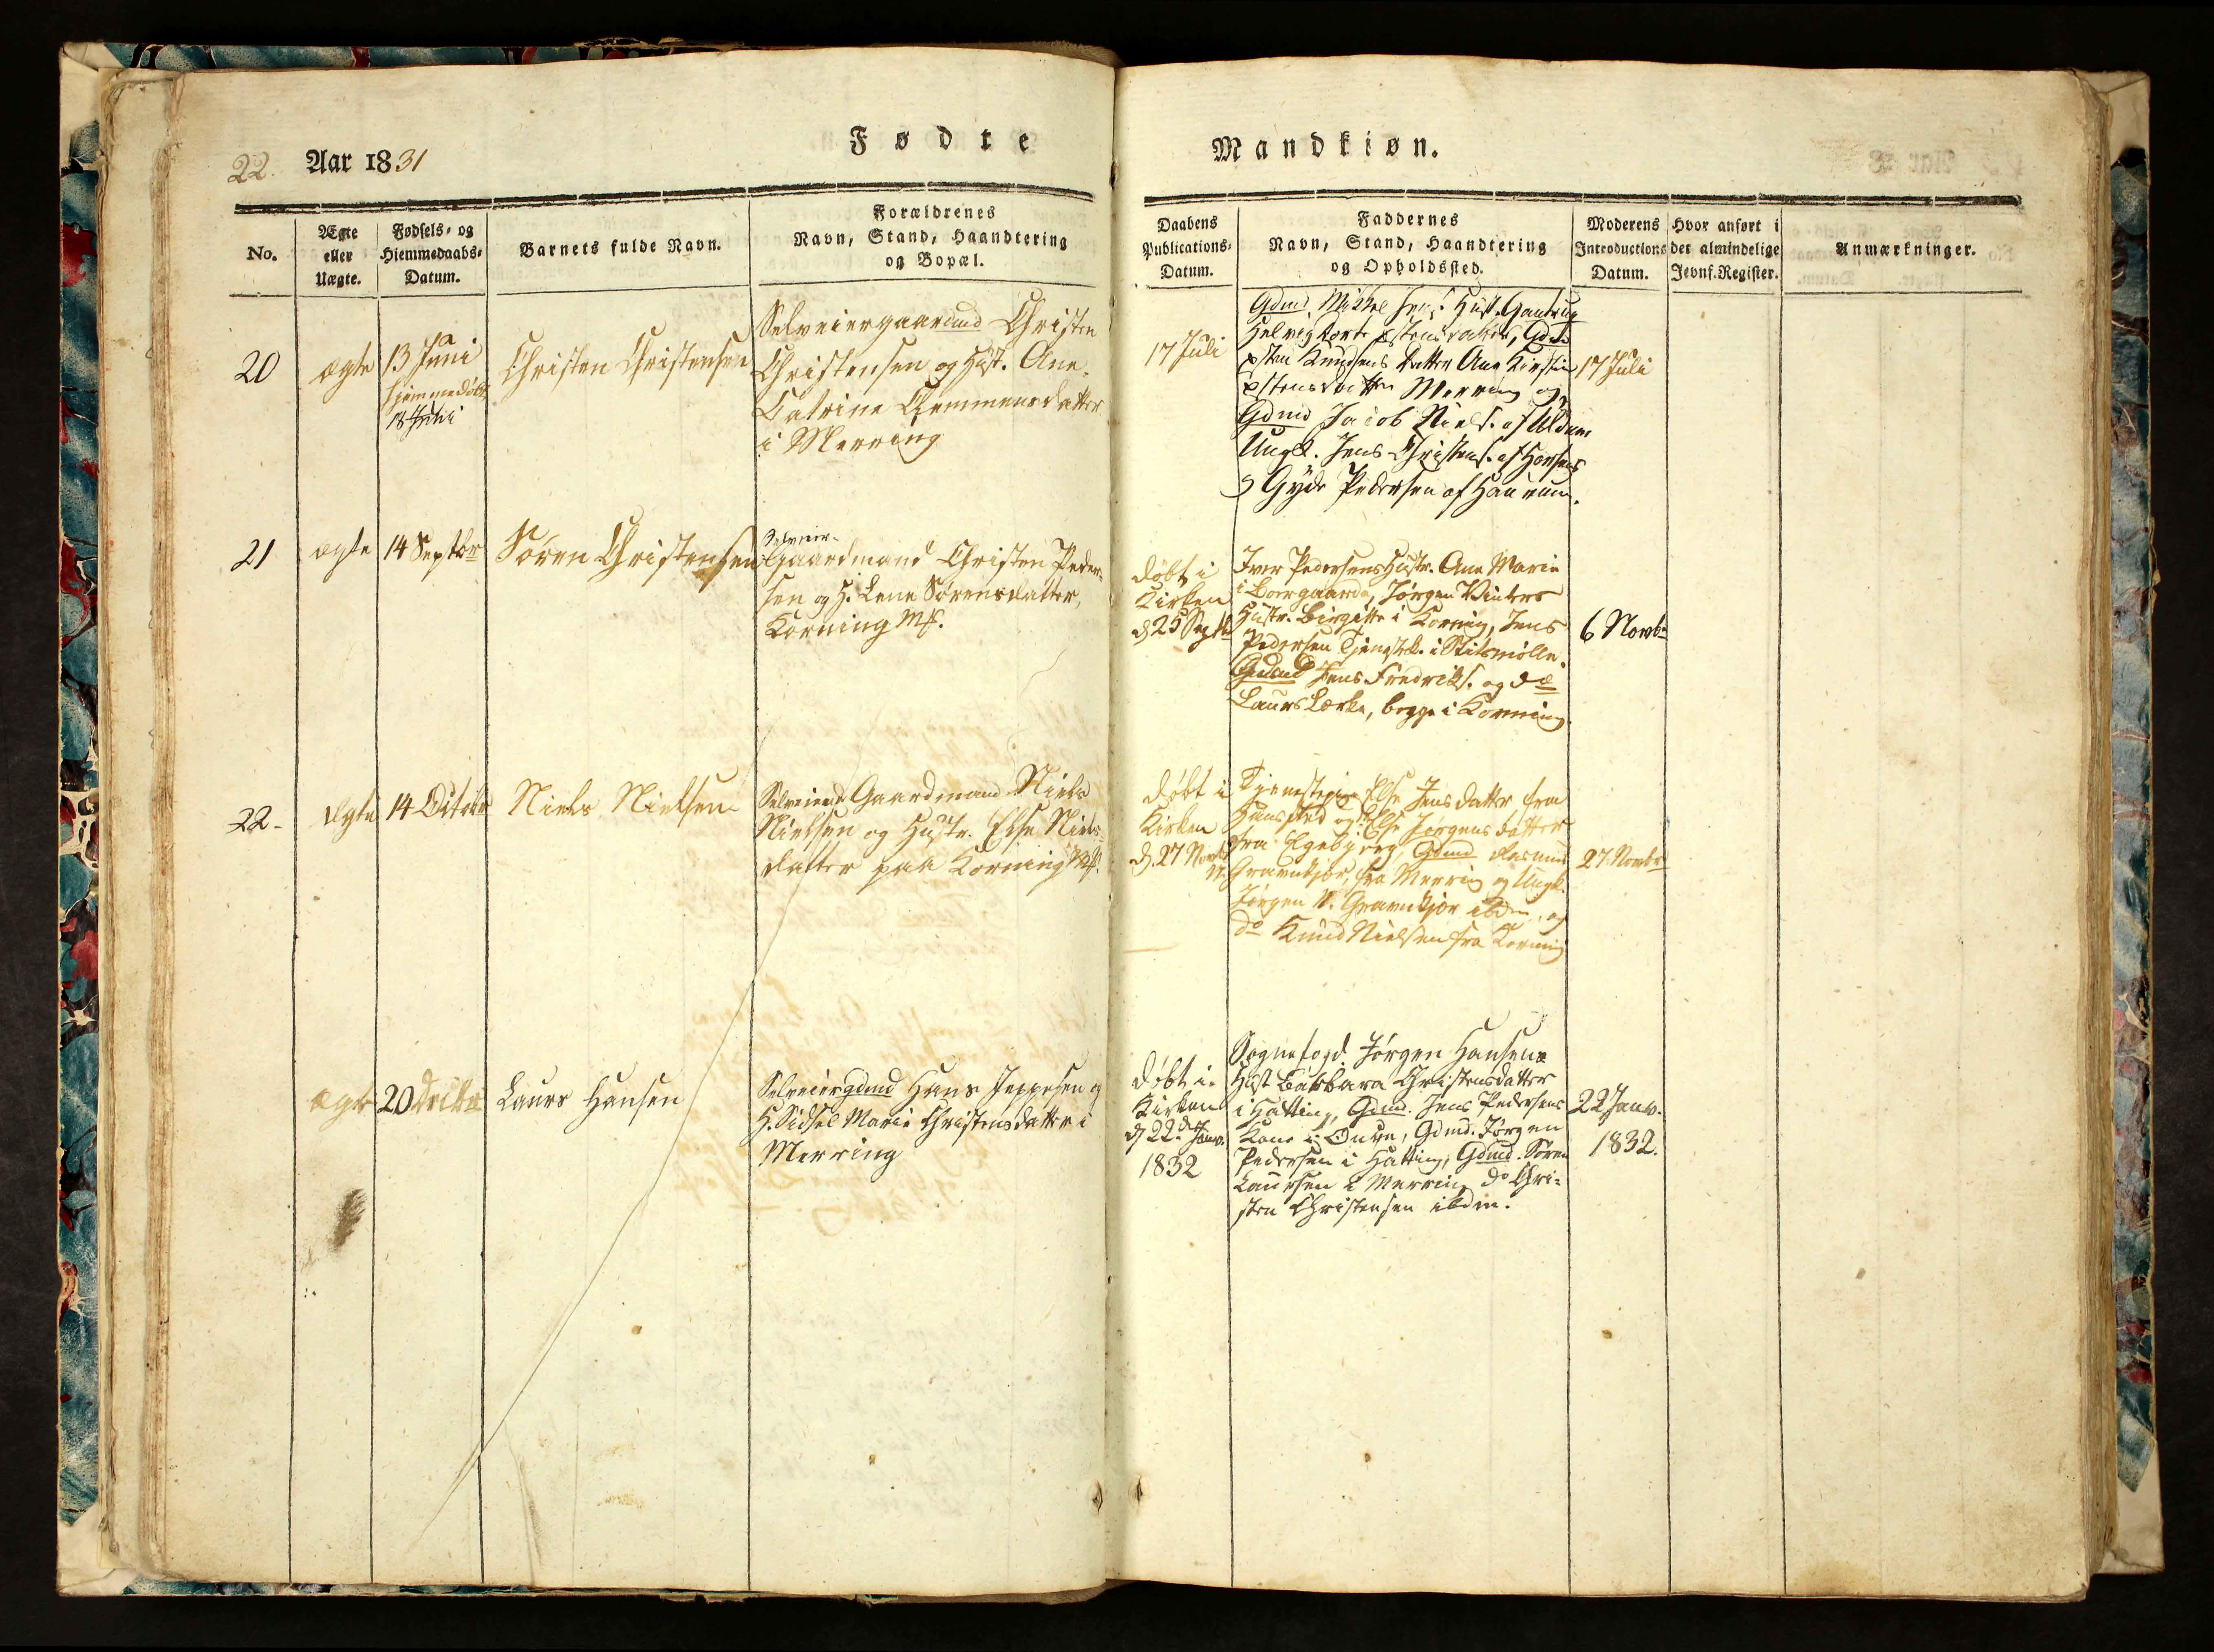 22. Aar 1831
Fødte
Mandkiøn.
No.
Ægte
eller
Uægte.
Fødsels- og
Hiemmedaabs-
Datum.
Barnets fulde Navn.
Forældrenes
Navn, Stand, Haandtering
og Bopæl.
Daabens
Publications-
Datum.
Faddernes
Navn, Stand, Haandtering
og Opholdssted.
Moderens
Introductions
Datum.
Hvor anført i
det almindelige
Jevnf. Register.
Anmærkninger.
20
ægte
13 Juni
hjemmedøbt
18 Juni
Christen Christensen
Selveiergaardmd Christen
Christensen og Hust. Ane
Catrine Clemmensdatter
i Merring
17 Juli
Gdmd. Mikkel Jens. Hust.
Gdmd
Knudsens Datter Ane Kirstine
Merring og
Gdmd Jacob Niels. af Uldum
Ungk. Jens Christens. af Horsens
Gyde Pedersen af
17 Juli
21
ægte
14 Septbr
Søren Christensen
Selveier-
Gaardmand Christen Peder-
sen og H. Lene Sørensdatter,
Korning M.
døbt i
Kirken
d 25 Septb
Iver Pedersens Hustr. Ane Marie
i Boergaarde, Jørgen Winters
Hustr. Birgitte i Korning, Jens
Pedersen Tjenestek. i Stitsmølle.
Gdmd Jens Fredriks. og do
Laurs Lerke, begge i Korning.
6 Novbr
22-
ægte
14 Octobr
Niels Nielsen
Selveier Gaardmand Niels
Nielsen og Hustr. Else Niels-
datter paa Korning M.
døbt i
Kirken
d. 27 Novbr
Tjenestepige Else Jensdatter fra
Hansted og Else Jørgensdatter
fra Egebjerg Gdmd Rasmus
Gravenkjær, fra Merring og Ungk.
Jørgen N. Gravenkjær ibdm, og
do Knud Nielsen fra Korning
27. Novbr
ægte
20 Decbr
Laurs Hansen
Selveiergdmd Hans Jeppesen og
H. Sidsel Marie Christensdatter i
Merring
døbt i
Kirken
d 22 Janr.
1832
Sognefogd Jørgen Hansens
Hust Barbara Christensdatter
i Hatting, Gdmd. Jens Pedersens
Kone i Ønve, Gdmd. Jørgen
Pedersen i Hatting, Gdmd. Søren
Laursen i Merring do Chri-
sten Christensen ibdm.
22 Janr.
1832.